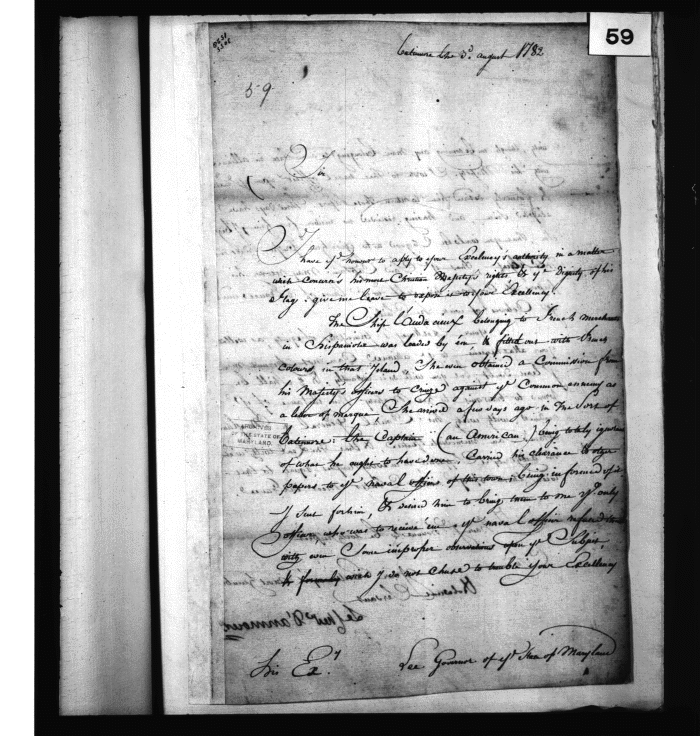 59
59
Baltimore the 3d. august 1782
Sir
I have ye. honour to apply to your Excellency's authority in a matter
wich concern's his most Christian Majesty's rights & ye. dignity of his
flag. give me leave to expose it to your Excellency.
The Ship l'audacieux belonging to French merchants
in hispaniola was loaded by em, & fitted out with French
colours in that Island. She even obtained a Commission from
his Majesty's officers to cruize against ye. Common ennemy as
a letter of marque. She arrived a few days ago in the Port of
Baltimore: the Captain (an American) being totaly ignorant
of what he ought to have done, Carried his clearance & other
papers to ye. naval officer of this town; being informed of it
I sent for him, & desired him to bring them to me ye. only
officer, who was to receive 'em. ye. naval officer refused it
with even Some improper observations upon ye. Subject,
& formerly wich I do not chuse to trouble your Excellency
his Ey.
Lee Governor of ye. State of Maryland
ARCHIVES
OF THE STATE OF
MARYLAND